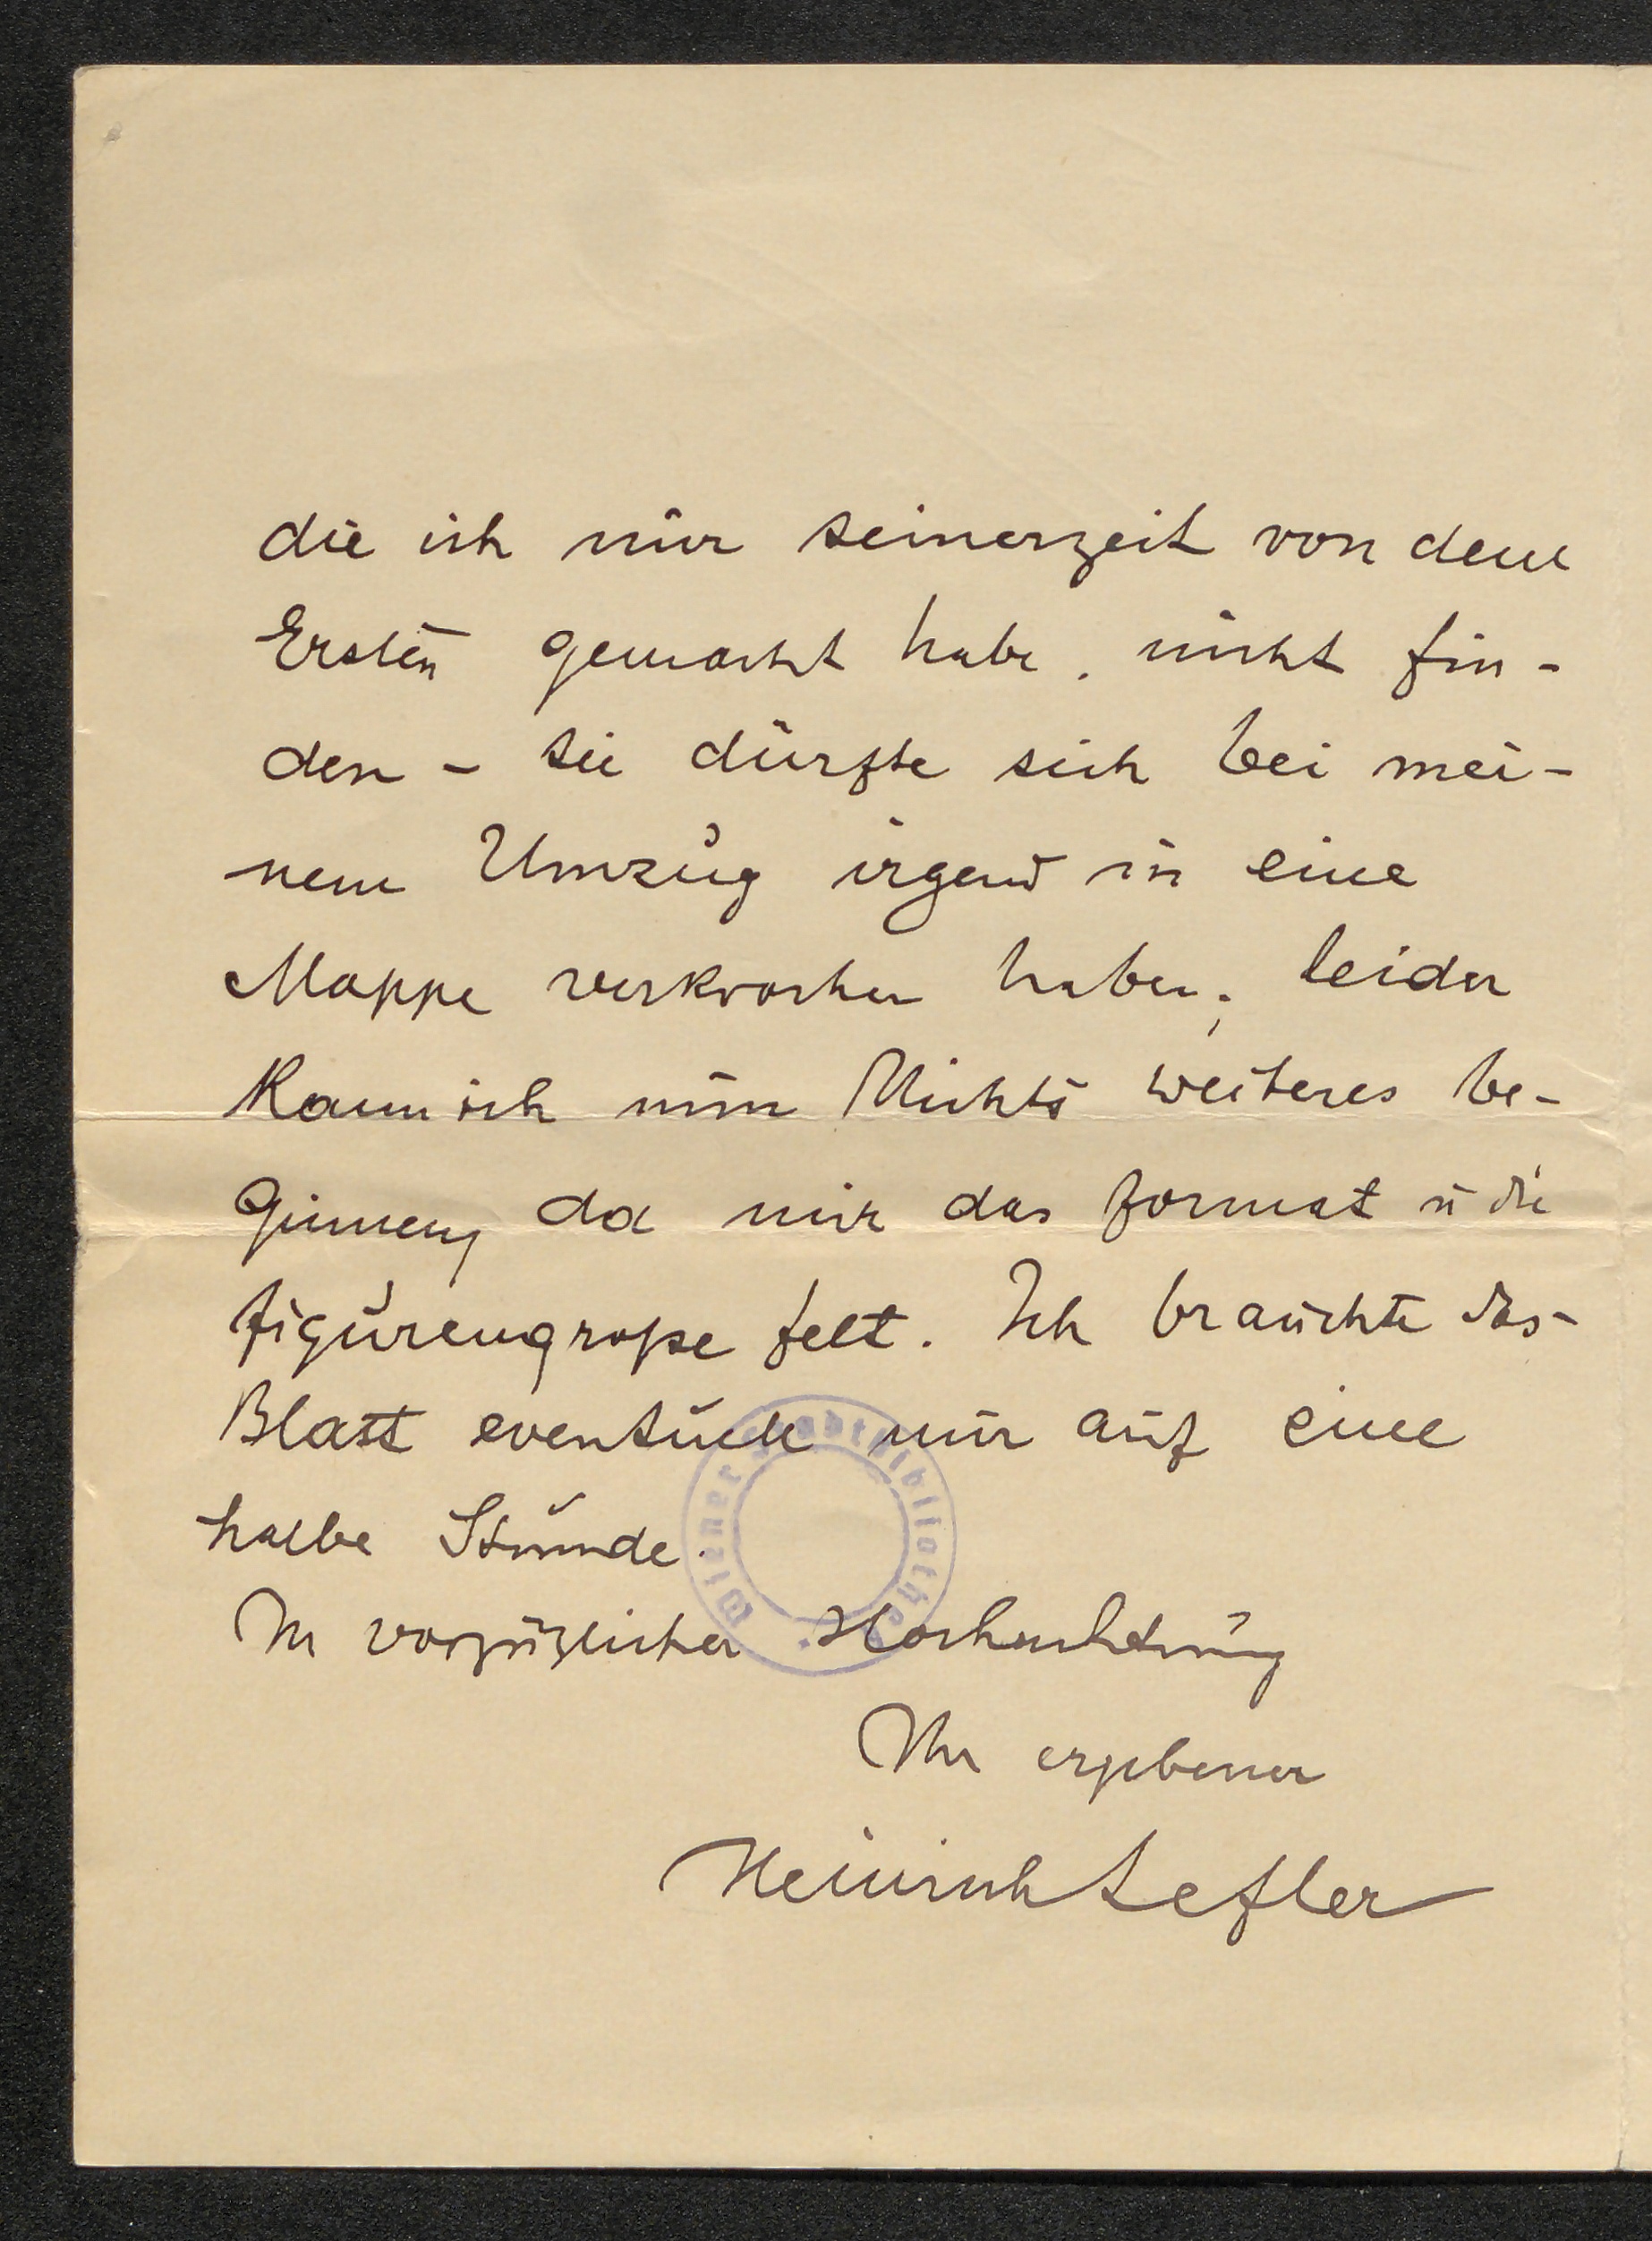 die ich mir seinerzeit von dem
Ersten gemacht habe, nicht fin-
den - sie dürfte sich bei mei-
nem Umzug irgend in eine
Mappe verkrochen haben; leider
kann ich nun Nichts weiteres be-
ginnen, da mir das Format u die
Figurengroße felt. Ich brauchte das
Blatt eventuell nur auf eine
halbe Stunde.
In vorzüglicher Hochachtung
Ihr ergebener
Heinrich Lefler
Wiener Stadtbibliothek